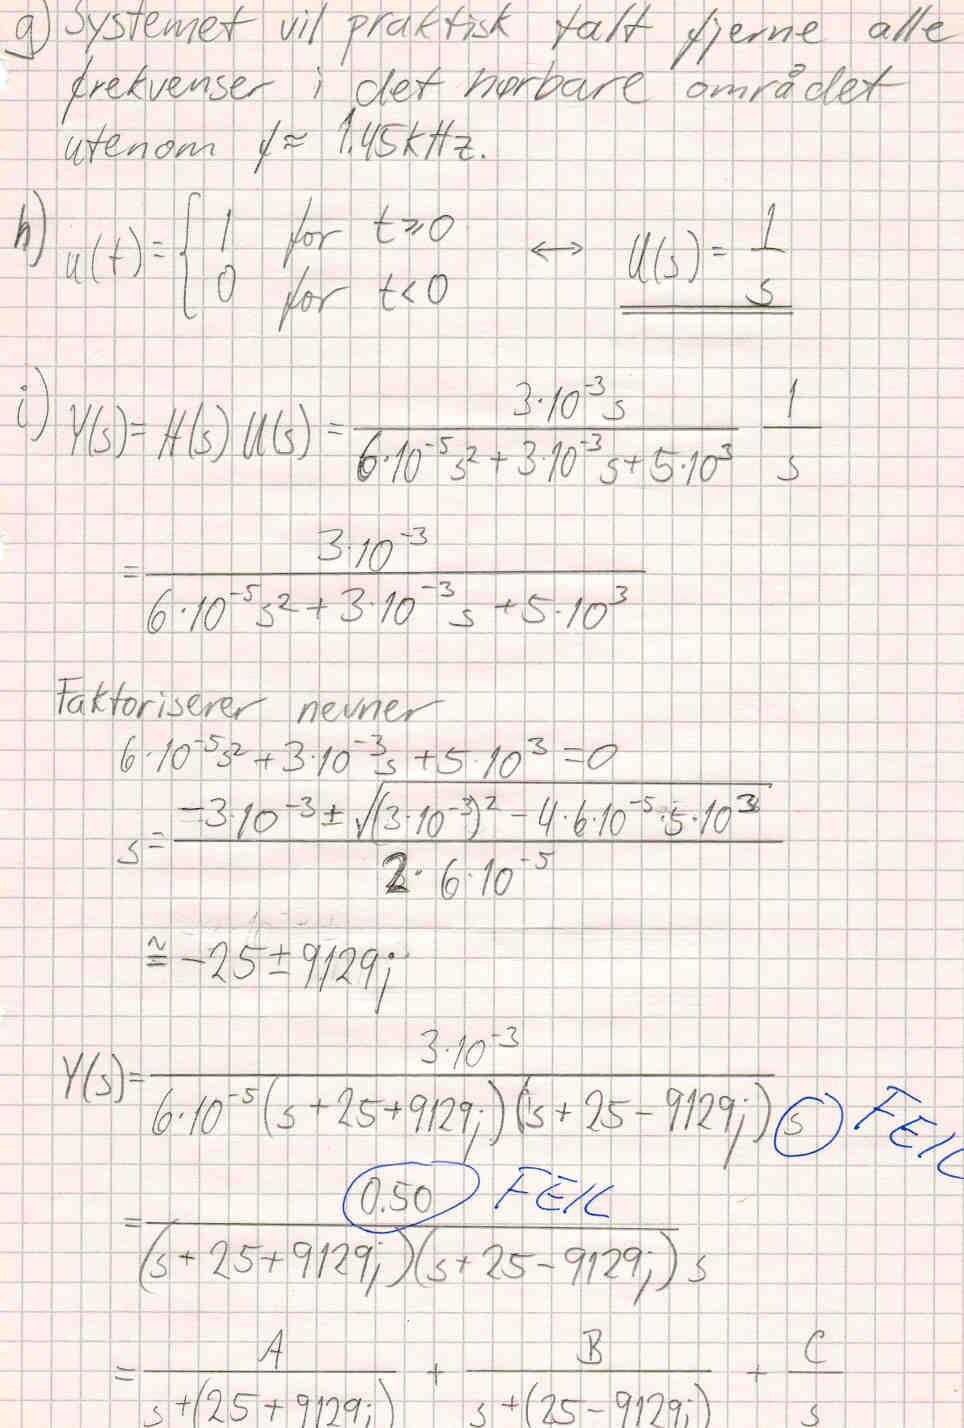 g) Systemet vil praktisk talt fjerne alle
frekvenser i det hørbare området
utenom f ≈ 1.45kHz.
h) u(t) = { 1 for t ≥ 0 ↔ U(s) = 1/s
0 for t < 0
i) Y(s) = H(s) U(s) = 3·10⁻³s / (6·10⁻⁵s² + 3·10⁻³s + 5·10³) · 1/s
= 3·10⁻³ / (6·10⁻⁵s² + 3·10⁻³s + 5·10³)
Faktoriserer nevner
6·10⁻⁵s² + 3·10⁻³s + 5·10³ = 0
s = (−3·10⁻³ ± √((3·10⁻³)² − 4·6·10⁻⁵·5·10³)) / (2·6·10⁻⁵)
≅ −25 ± 9129j
Y(s) = 3·10⁻³ / (6·10⁻⁵(s+25+9129j)(s+25−9129j)s) FEIL
= 0.50 / ((s+25+9129j)(s+25−9129j)s) FEIL
= A / (s+(25+9129j)) + B / (s+(25−9129j)) + C / s